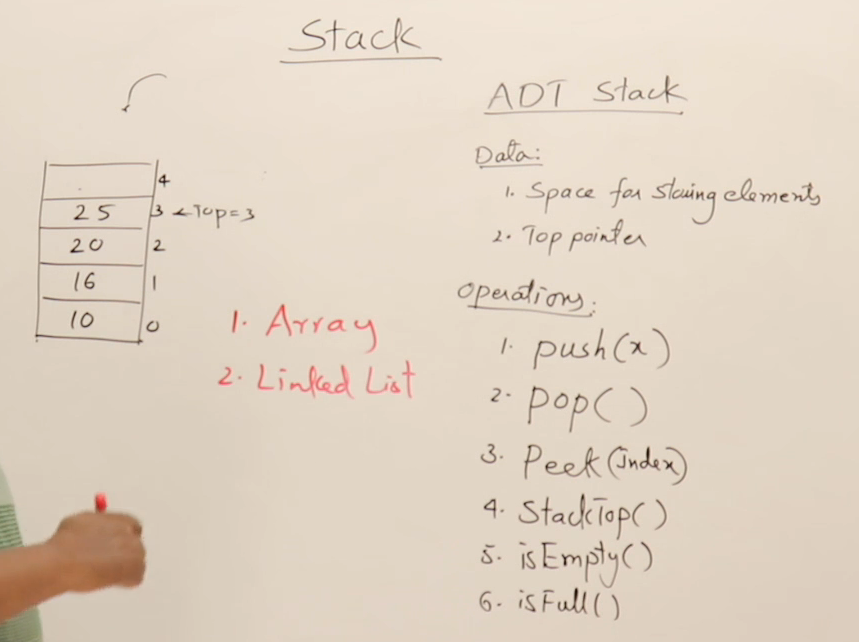 Stack
4
25 3 ←Top=3
20 2
16 1
10 0
1. Array
2. Linked List
ADT Stack
Data:
1. Space for storing elements
2. Top pointer
Operations:
1. push(x)
2. pop()
3. Peek(index)
4. StackTop()
5. isEmpty()
6. isFull()